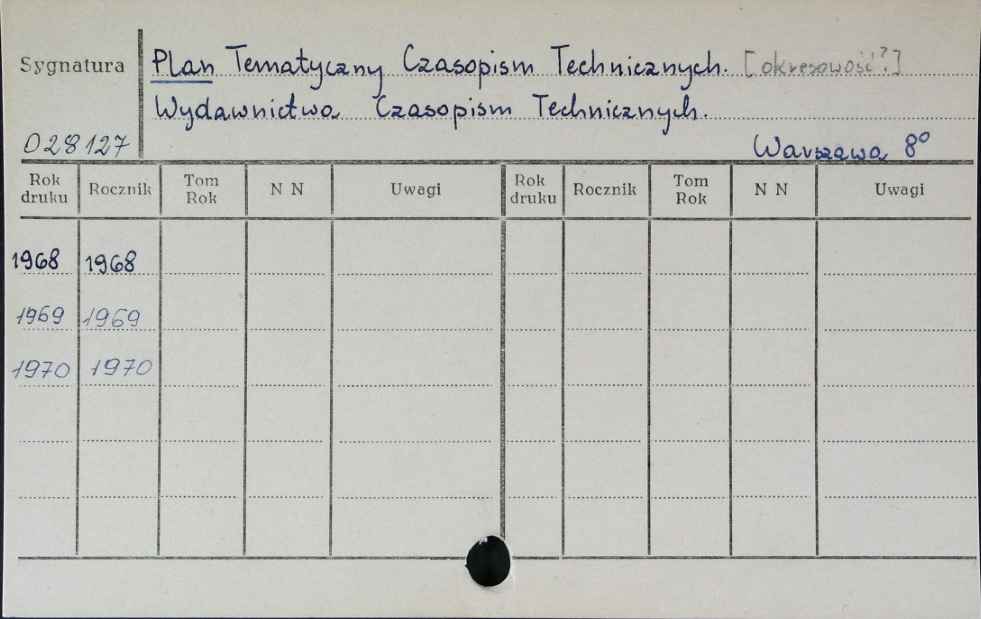 Sygnatura Plan Tematyczny Czasopism Technicznych. [okresowość?]
Wydawnictwo Czasopism Technicznych.
028127 Warszawa 8°
Rok druku Rocznik Tom Rok N N Uwagi Rok druku Rocznik Tom Rok N N Uwagi
1968 1968
1969 1969
1970 1970